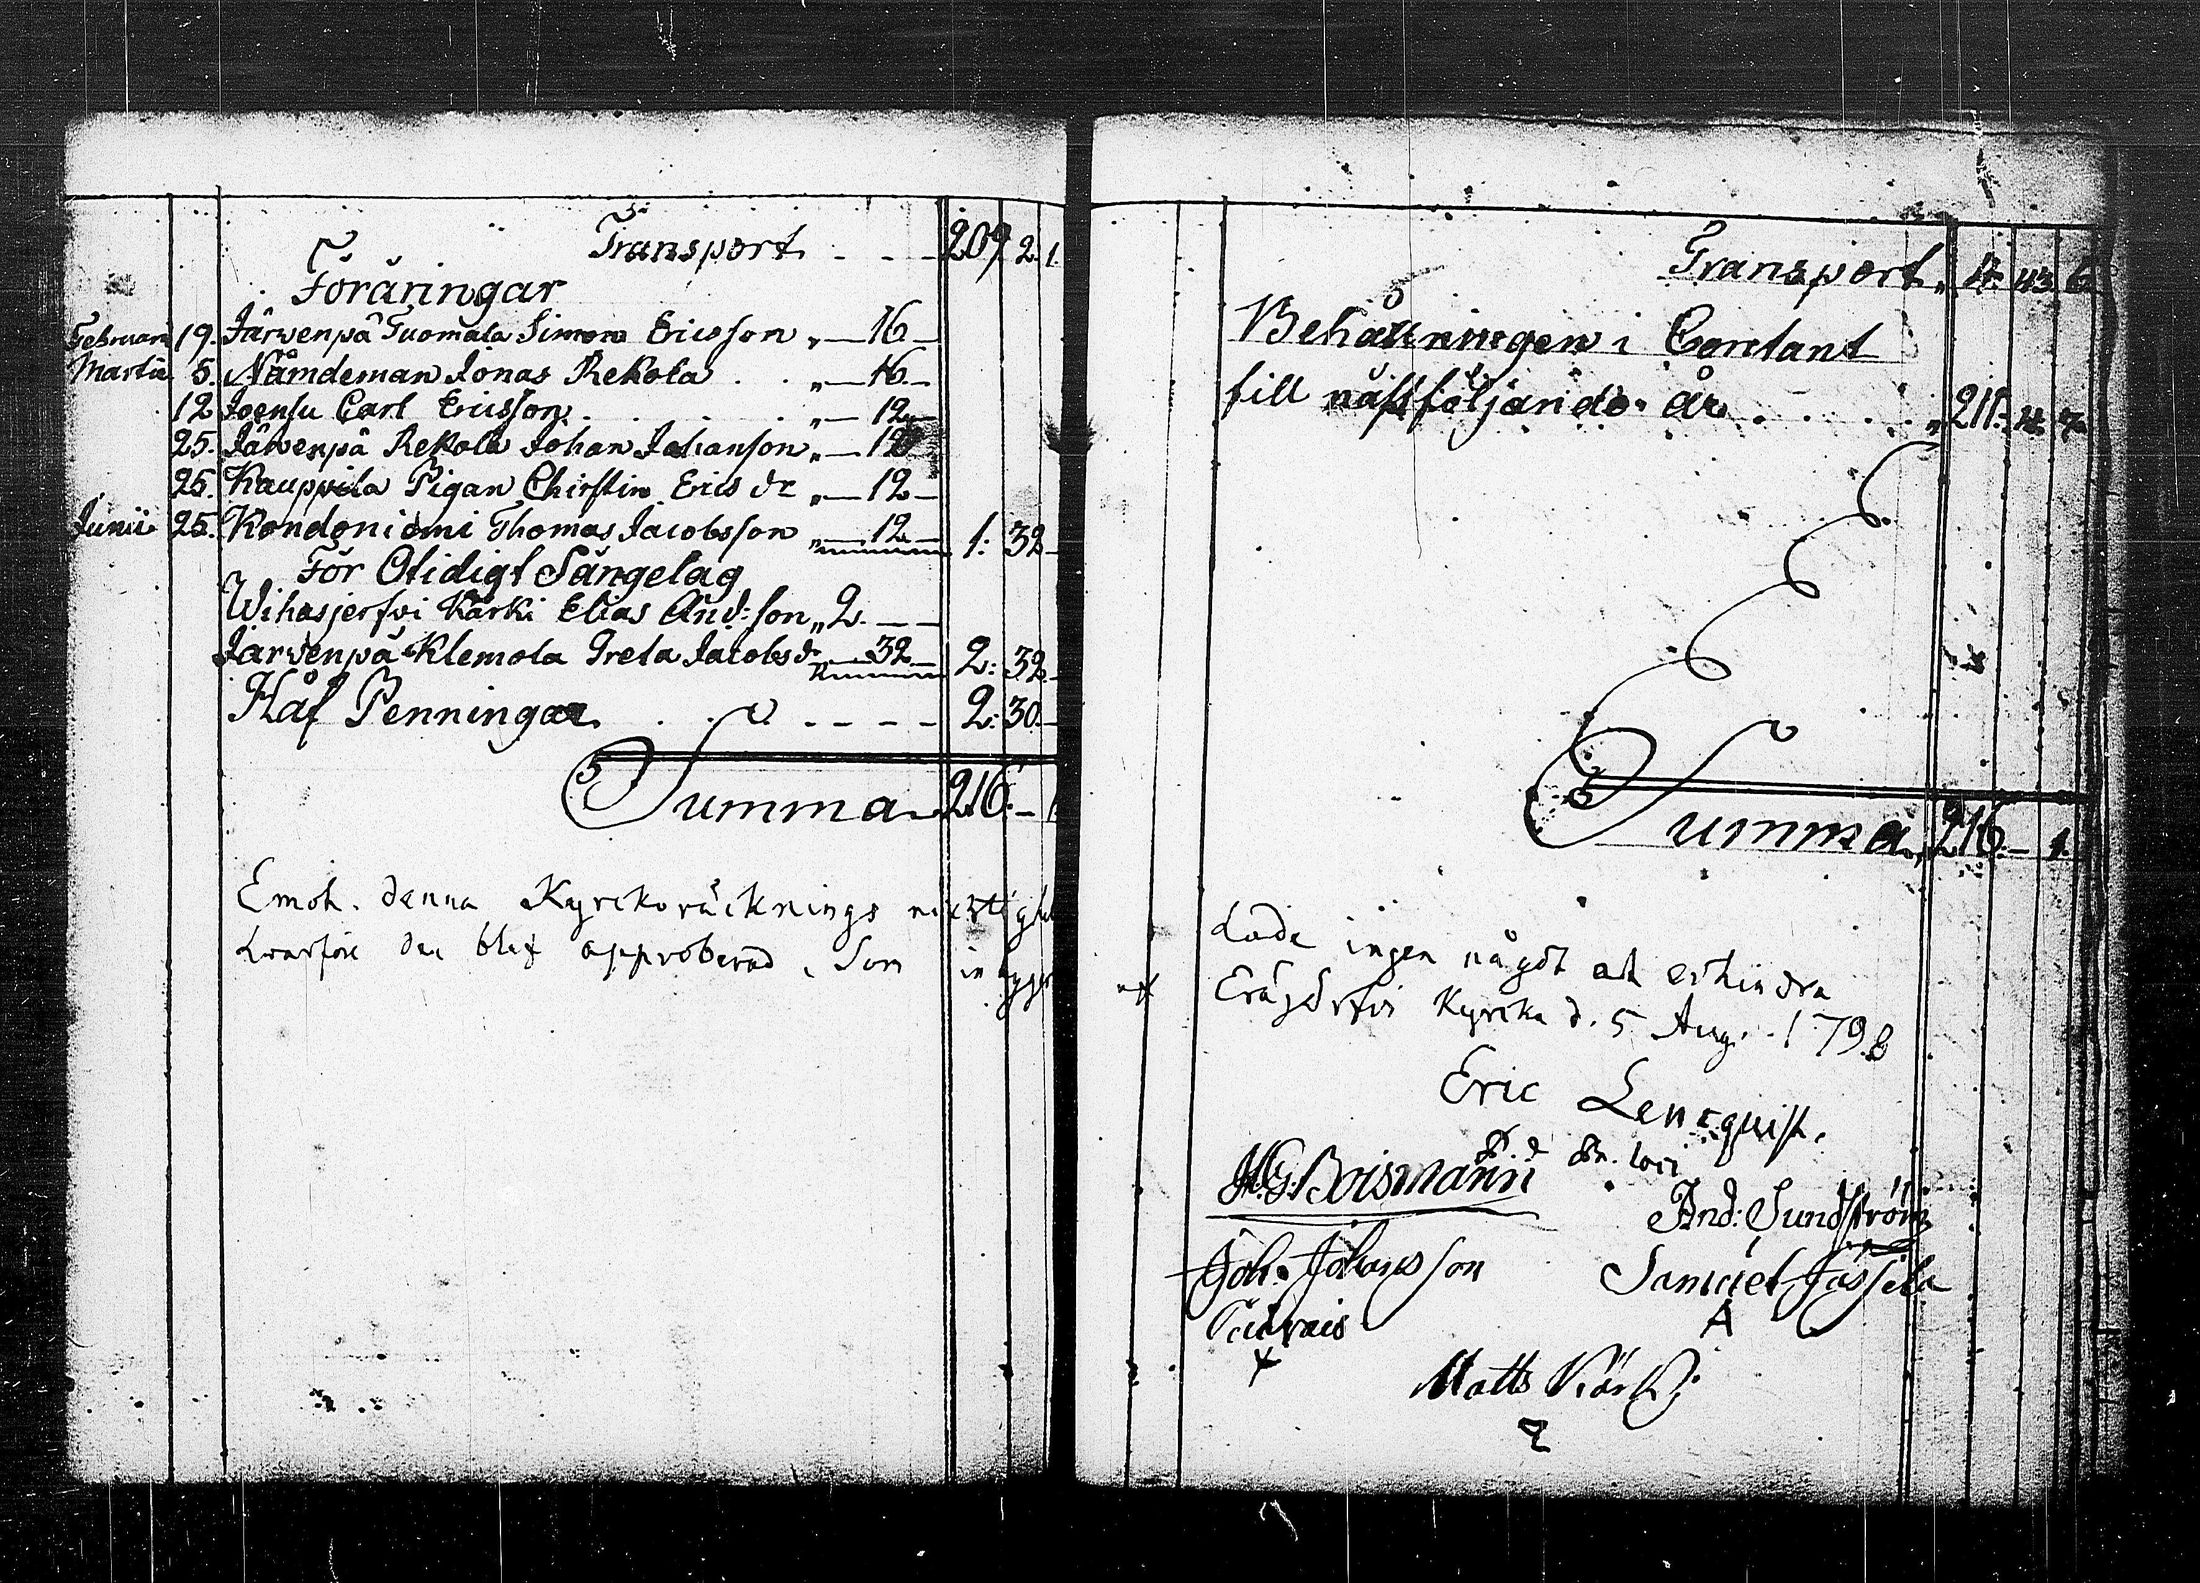 Transport - - - 209. 2. 1.
Föräringar
Februarii 19. Järvenpä Tuomala Simon Ericsson „ — 16 —
Martii 5. Nämdeman Jonas Rekola . . „ — 16 —
12 Joensu Carl Ericsson . . . . . „ — 12 —
25. Järvenpä Rekola Johan Johanson „ — 12
25. Kauppila Pigan Chirstin Erics dr „ — 12 —
Junii 25. Kondoniemi Thomas Jacobsson „ — 12 — 1: 32 —
För Otidigt Sängelag
Wihasjerfvi Kärki Elias And:son „ 2. — —
Järvenpä Klemola Greta Jacobs dr — 32 — 2: 32 —
Håf Penningar . . . - - - - 2: 30. —
Summa 216. — 1
Emot denna Kyrckoräcknings
hvarföre den blef approberad, Som
Transport „ 4. 43. 6.
Behållningen i Contant
till nästföljande år . . . . . „ 211. 4. 7.
Summa „ 216. — 1.
hade ingen något at erhindra
Eräjärfvi Kyrcka d. 5 Aug. 1798
Eric Lencquist.
loci
H.G. Boismann
And: Sundström
Joh. Johansson
Samuel Jussila
A
Matts Kärki